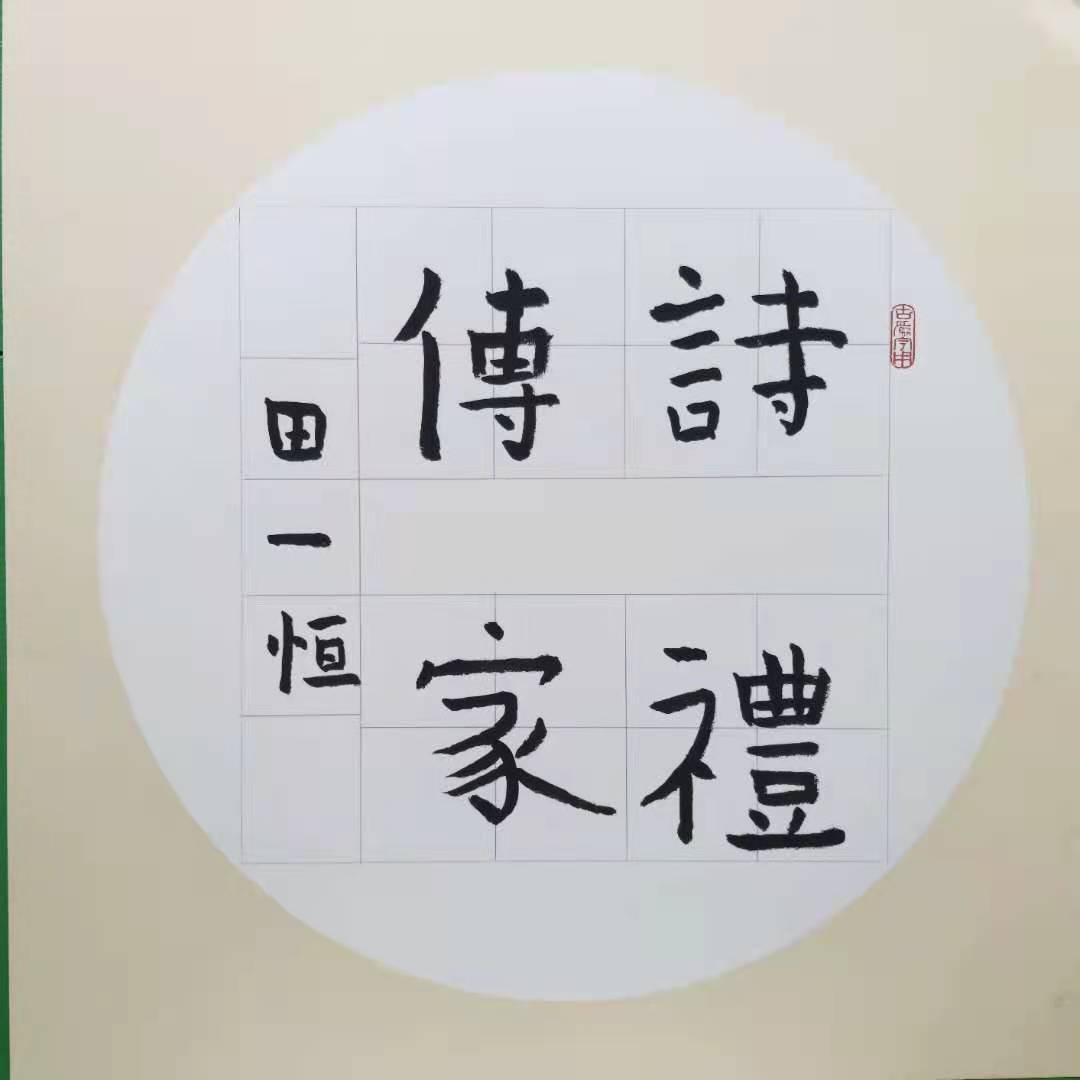 詩禮
傳家
田一恒